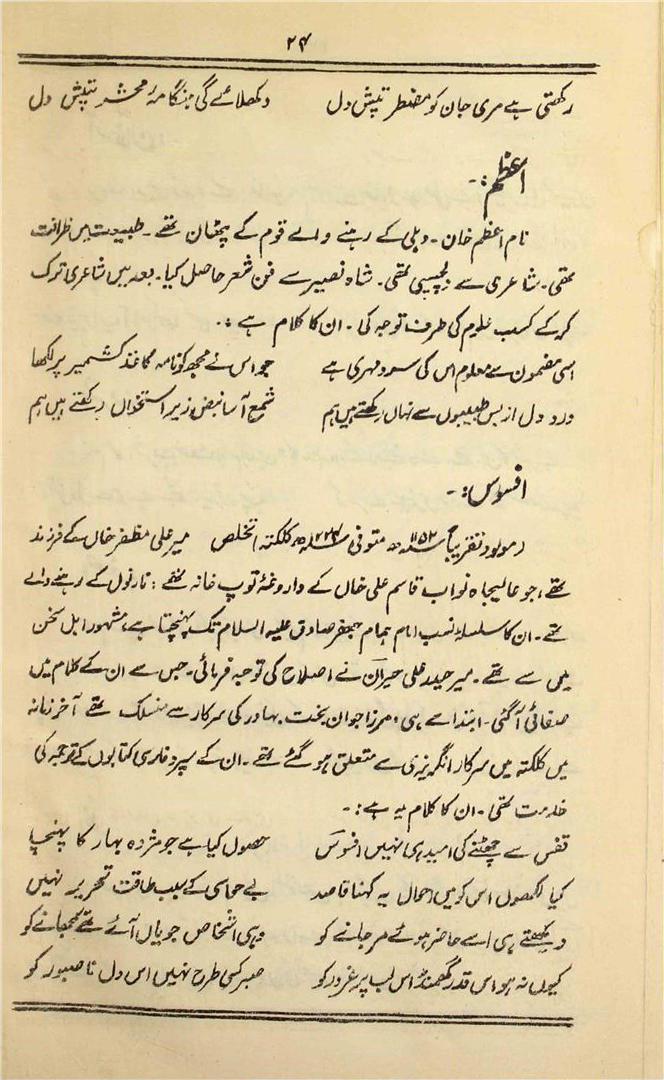 ۲۴
رکھتی ہے مری جان کو مضطر تپش دل دکھلائے گی ہنگامۂ محشر تپش دل
اعظم :۔
نام اعظم خان ۔ دہلی کے رہنے والے قوم کے پٹھان تھے ۔ طبیعت میں ظرافت
تھی ۔ شاعری سے دلچسپی تھی ۔ شاہ نصیر سے فن شعر حاصل کیا ۔ بعد میں شاعری ترک
کر کے کسب علوم کی طرف توجہ کی ۔ ان کا کلام ہے :۔
اسی مضمون سے معلوم اس کی سرد مہری ہے جو اس نے مجھ کو نامہ کاغذ کشمیر پر لکھا
درد دل از بس طبیبوں سے نہاں رکھتے ہیں ہم شمع آسا نبض زیر استخواں رکھتے ہیں ہم
افسوس :۔
(مولود تقریباً ۱۱۵۲ھ متوفی ۱۲۲۴ھ کلکتہ) تخلص میر علی مظفر خاں کے فرزند
تھے، جو عالیجاہ نواب قاسم علی خاں کے داروغۂ توپ خانہ تھے ؛ نارنول کے رہنے والے
تھے ۔ ان کا سلسلۂ نسب امام ہمام جعفر صادق علیہ السلام تک پہنچتا ہے، مشہور اہل سخن
میں سے تھے ۔ میر حیدر علی حیراں نے اصلاح کی توجہ فرمائی ۔ جس سے ان کے کلام میں
صفائی آ گئی ۔ ابتدا سے ہی، مرزا جواں بخت بہادر کی سرکار سے منسلک تھے آخر زمانہ
میں کلکتہ میں سرکار انگریزی سے متعلق ہو گئے تھے ۔ ان کے سپرد فارسی کتابوں کے ترجمہ کی
خدمت تھی ۔ ان کا کلام یہ ہے :۔
قفس سے چھٹنے کی امید ہی نہیں افسوس حصول کیا ہے جو مژدہ بہار کا پہنچا
کیا لکھوں اس کو میں احوال یہ کہنا قاصد بے حواسی کے سبب طاقت تحریر نہیں
دیکھتے ہی اسے حاضر ہوئے مر جانے کو وہی اشخاص جو یاں آئے تھے سمجھانے کو
کیوں نہ ہو اس قدر گھمنڈ اس لب پر غرور کو صبر کسی طرح نہیں اس دل ناصبور کو